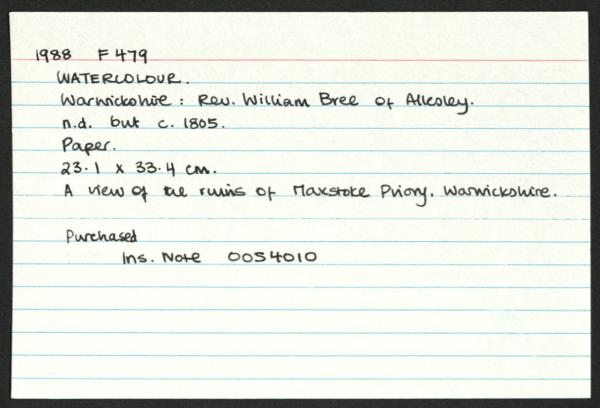 1988 F 479
WATERCOLOUR.
Warwickshire: Rev. William Bree of Allesley.
n.d. but c. 1805.
Paper.
23.1 x 33.4 cm.
A view of the ruins of Maxstoke Priory, Warwickshire.
Purchased
Ins. Note 0054010